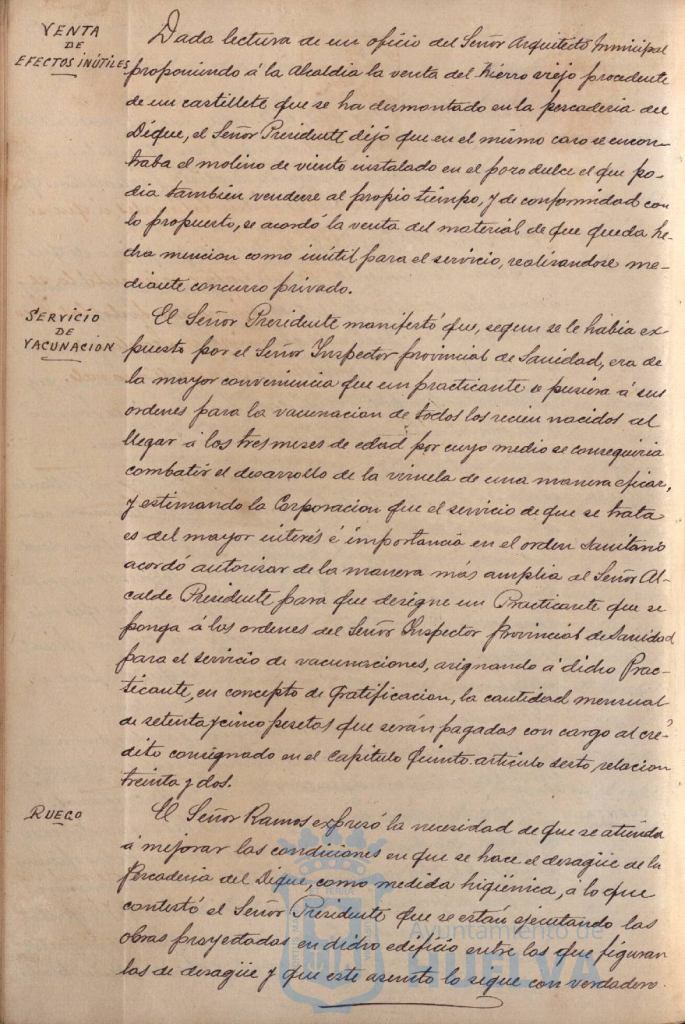 VENTA
DE
EFECTOS INÚTILES
Dada lectura de un oficio del Señor Arquitecto Municipal
proponiendo á la Alcaldia la venta del hierro viejo procedente
de un castillete que se ha desmontado en la pescaderia del
Dique, el Señor Presidente dijo que en el mismo caso se encon-
traba el molino de viento instalado en el pozo dulce el que po-
dia tambien venderse al propio tiempo, y de conformidad con
lo propuesto, se acordó la venta del material de que queda he-
cha mencion como inútil para el servicio, realizandose me-
diante concurso privado.
SERVICIO
DE
VACUNACION
El Señor Presidente manifestó que, segun se le habia ex-
puesto por el Señor Inspector provincial de Sanidad, era de
la mayor conveniencia que un practicante se pusiera á sus
ordenes para la vacunacion de todos los recien nacidos al
llegar á los tres meses de edad por cuyo medio se conseguiria
combatir el desarrollo de la viruela de una manera eficaz,
y estimando la Corporacion que el servicio de que se trata
es del mayor interés é importancia en el orden sanitario
acordó autorizar de la manera más amplia al Señor Al-
calde Presidente para que designe un Practicante que se
ponga á las ordenes del Señor Inspector Provincial de Sanidad
para el servicio de vacunaciones, asignando á dicho Prac-
ticante, en concepto de gratificacion, la cantidad mensual
de setenta y cinco pesetas que serán pagadas con cargo al cré-
dito consignado en el Capitulo Quinto articulo sexto, relacion
treinta y dos.
RUEGO
El Señor Ramos expresó la necesidad de que se atienda
á mejorar las condiciones en que se hace el desagüe de la
Pescaderia del Dique, como medida higiénica, á lo que
contestó el Señor Presidente que se están ejecutando las
obras proyectadas en dicho edificio entre las que figuran
las de desagüe y que este asunto lo sigue con verdadero
Ayuntamiento de
HUELVA